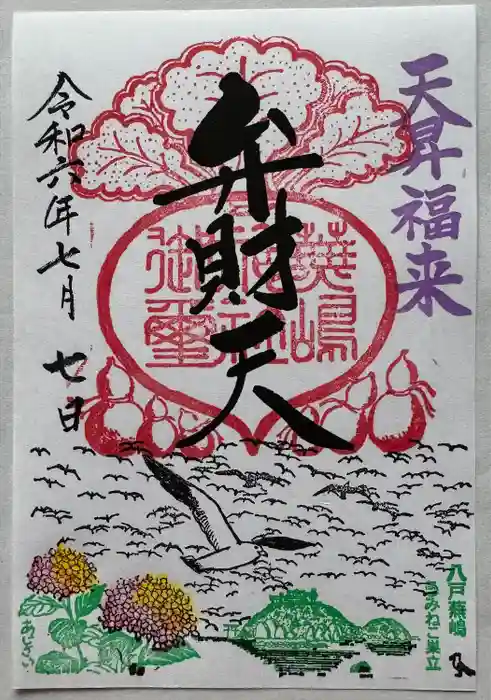 天昇福来
弁財天
蕪嶋
神社
御璽
令和六年七月
七日
八戸蕪嶋
うみねこ巣立
あじさい